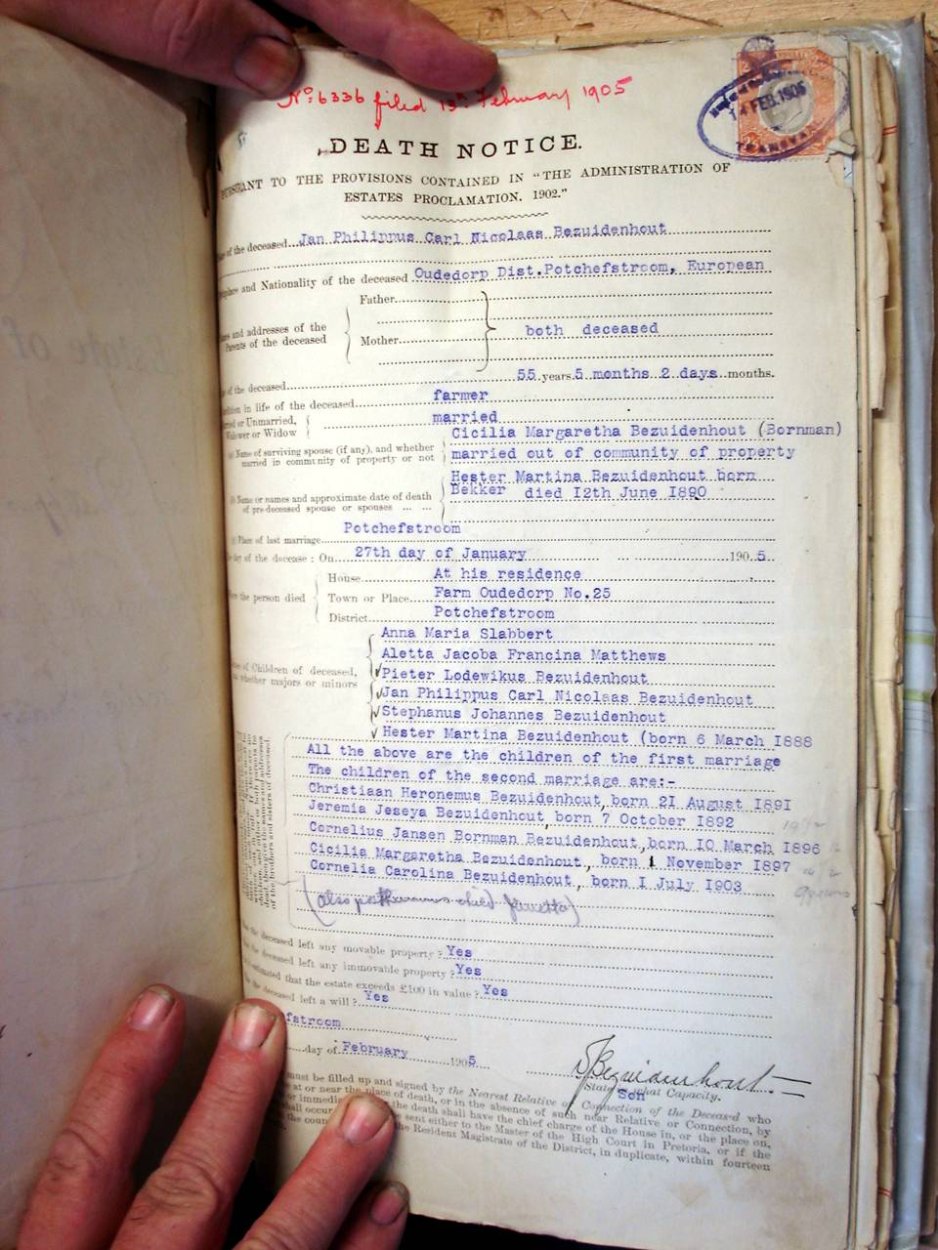 No: 6336 filed 13th February 1905
14 FEB. 1905
TRANSVAAL
DEATH NOTICE.
TO THE PROVISIONS CONTAINED IN "THE ADMINISTRATION OF
ESTATES PROCLAMATION, 1902."
of the deceased Jan Philippus Carl Nicolaas Bezuidenhout
and Nationality of the deceased Oudedorp Dist.Potchefstroom, European
Father
and addresses of the
Parents of the deceased
both deceased
Mother
of the deceased 55 years 5 months 2 days months.
in life of the deceased farmer
or Unmarried, married
or Widow
Name of surviving spouse (if any), and whether Cicilia Margaretha Bezuidenhout (Bornman)
married in community of property or not married out of community of property
Name or names and approximate date of death Hester Martina Bezuidenhout born
of pre-deceased spouse or spouses ... ... Bekker died I2th June I890
Place of last marriage Potchefstroom
of the decease : On 27th day of January 1905.
House At his residence
the person died Town or Place Farm Oudedorp No.25
District Potchefstroom
Anna Maria Slabbert
Aletta Jacoba Francina Matthews
of Children of deceased, Pieter Lodewikus Bezuidenhout
whether majors or minors Jan Philippus Carl Nicolaas Bezuidenhout
Stephanus Johannes Bezuidenhout
Hester Martina Bezuidenhout (born 6 March I888
All the above are the children of the first marriage
The children of the second marriage are:-
Christiaan Heronemus Bezuidenhout, born 2I August I89I
Jeremia Jeseya Bezuidenhout, born 7 October I892
Cornelius Jansen Bornman Bezuidenhout, born I0 March I896
Cicilia Margaretha Bezuidenhout, born 1 November I897
Cornelia Carolina Bezuidenhout, born I July I903
(also posthumous child
the deceased left any movable property ? Yes
the deceased left any immovable property ? Yes
estimated that the estate exceeds £100 in value ? Yes
the deceased left a will ? Yes
fstroom
day of February 1905
Bezuidenhout.
Capacity.
Son
must be filled up and signed by the Nearest Relative or Connection of the Deceased who
at or near the place of death, or in the absence of such near Relative or Connection, by
the death shall have the chief charge of the House in, or the place on,
sent either to the Master of the High Court in Pretoria, or if the
the Resident Magistrate of the District, in duplicate, within fourteen